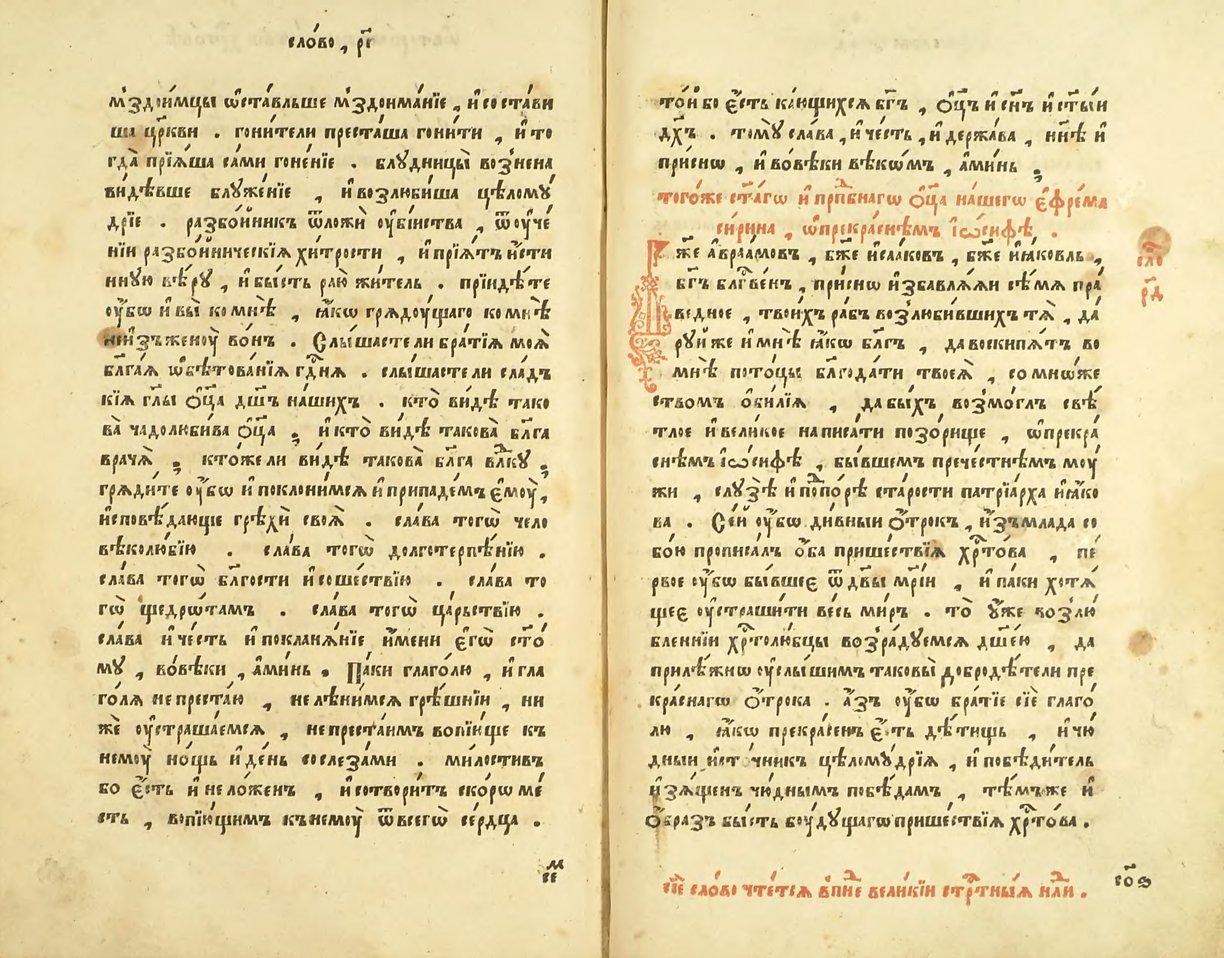 сло́во, рг҃
мздои́мцы ѡ҆ста́вльше мздоима́нїе, и҆ соста́ви
ша цр҃кви. гони́тели преста́ша гони́ти, и҆ то
гда̀ прїѧ́ша са́ми гоне́нїе. блꙋдни́цы возⸯнена
ви́дѣвше блꙋже́нїе, и҆ возлюби́ша цѣломꙋ́
дрїе. разбо́йникъ ѿложѝ оу҆бі́иства, ѿоу҆че́
нїи разбо́йническїѧ хи́трости, и҆ прїѧ́тъ и҆́сти
ннꙋю вѣ́рꙋ, и҆ бы́сть раю̀ жи́тель. прїидѣ́те
оу҆́бѡ и҆ вы̀ ко мнѣ̀, ꙗ҆́кѡ грѧдоу́щаго ко мнѣ̀
не и҆зъженоу̀ во́нъ. Слы́шасте ли бра́тїѧ моѧ̀
бл҃га́ѧ ѡ҆бѣтова́нїѧ гд҃нѧ. слы́шасте ли сла́дъ
кїѧ гл҃ы ѻ҆ц҃а̀ дш҃ъ на́шихъ. кто̀ ви́дѣ тако
ва̀ чадолюби́ва ѻ҆ц҃а̀; и҆ кто̀ ви́дѣ такова̀ бл҃га
врача̀; кто́же ли ви́дѣ такова̀ бл҃га вл҃кꙋ;
грѧди́те оу҆́бѡ и҆ поклони́мсѧ и҆ припаде́мъ є҆моу̀,
и҆сповѣ́дающе грѣхѝ своѧ̀. сла́ва тогѡ̀ чело
вѣколю́бїю. сла́ва тогѡ̀ долготерпѣ́нїю.
сла́ва тогѡ̀ бл҃гости и҆ соше́ствїю. сла́ва то
гѡ̀ щедрѡ́тамъ. сла́ва тогѡ̀ ца́рьствїю.
сла́ва и҆ че́сть и҆ покланѧ́нїе и҆́мени є҆гѡ̀ ст҃о́
мꙋ, во вѣ́ки, а҆ми́нь. Па́ки глаго́лю, и҆ гла
го́лѧ не преста́ю, не лѣни́мсѧ грѣ́шнїи, ни
же оу҆страша́емсѧ, не преста́имъ вопїю́ще къ
немоу̀ но́щь и҆ де́нь со слеза́ми. ми́лостивъ
бо є҆́сть и҆ не ло́женъ, и҆ сотвори́тъ ско́рѡ ме́
сть, вопїю́щимъ къ немоу̀ ѿ всегѡ̀ се́рдца.
то́й бо є҆́сть ка́ющихсѧ бг҃ъ, ѻ҆ц҃ъ и҆ сн҃ъ и҆ ст҃ы́и
дх҃ъ. томꙋ̀ сла́ва, и҆ че́сть, и҆ держа́ва, нн҃ѣ и҆
при́снѡ, и҆ во вѣ́ки вѣкѡ́мъ, а҆ми́нь.
тогѡ́же ст҃а́гѡ и҆ прпⷣбнагѡ ѻ҆ц҃а̀ на́шегѡ є҆фре́ма
си́рина, ѡ҆ прекра́снѣмъ і҆ѡ́сифѣ.
Бж҃е а҆враа́мовъ, бж҃е и҆саа́ковъ, бж҃е и҆ꙗ́ковль,
бг҃ъ блг҃ве́нъ, при́снѡ и҆збавлѧ́ѧи сѣ́мѧ пра́
ведное, твои́хъ ра́бъ возлюби́вшихъ тѧ̀, да
рꙋ́й же и҆ мнѣ̀ ꙗ҆́кѡ бл҃гъ, да воскипѧ́тъ во
мнѣ̀ пото́цы бл҃года́ти твоеѧ̀, со мнѡ́же
ствомъ ѻ҆би́лїѧ, да бы́хъ возмо́глъ свѣ́
тлое и҆ вели́кое написа́ти позо́рище, ѡ҆ прекра́
снѣмъ і҆ѡ́сифѣ, бы́вшемъ пречестнѣ́мъ моу́
жи, слꙋзѣ̀ и҆ попо́рѣ ста́рости патрїа́рха и҆ꙗ́ко
ва. Се́й оу҆́бѡ ди́вныи ѻ҆́трокъ, и҆зъ мла́да со
бо́ю прописа́лъ ѻ҆́ба прише́ствїѧ хрⷭ҇то́ва, пе́
рвое оу҆́бѡ бы́вшеє ѿ дв҃ы мр҃і́и, и҆ па́ки хотѧ́
щеє оу҆страши́ти ве́сь ми́ръ. то̀ оу҆́же возлю́
бленнїи хрⷭ҇толю́бцы возра́дꙋемсѧ дш҃е́ю, да
прилѣ́жнѡ оу҆слы́шимъ таковы̀ добродѣ́тели пре
кра́снагѡ ѻ҆́трока. а҆́зъ оу҆́бѡ бра́тїе сїѐ глаго́
лю, ꙗ҆́кѡ прекра́сенъ є҆́сть дѣ́тищь, и҆ чю́
дныи и҆сто́чникъ цѣломꙋ́дрїѧ, и҆ побѣди́тель
и҆зѧ́щенъ чю́днымъ побѣ́дамъ, тѣ́мъже и҆
ѻ҆́бразъ бы́сть боу́дꙋщагѡ прише́ствїѧ хрⷭ҇то́ва.
сло́
рд҃
сїѐ сло́во чте́тсѧ в̾ пнⷣе вели́кїи стрⷭ҇тны́ѧ нлⷣи.
со҃ѳ